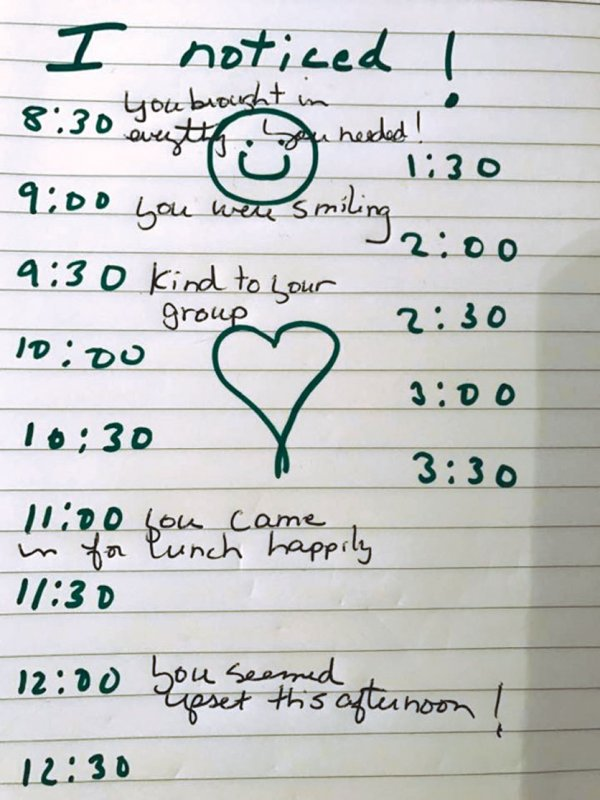 I noticed!
8:30 you brought in
everythg you needed!
9:00 you were smiling
9:30 Kind to your
group
10:00
10:30
11:00 you came
in for lunch happily
11:30
12:00 you seemed
upset this afternoon!
12:30
1:30
2:00
2:30
3:00
3:30